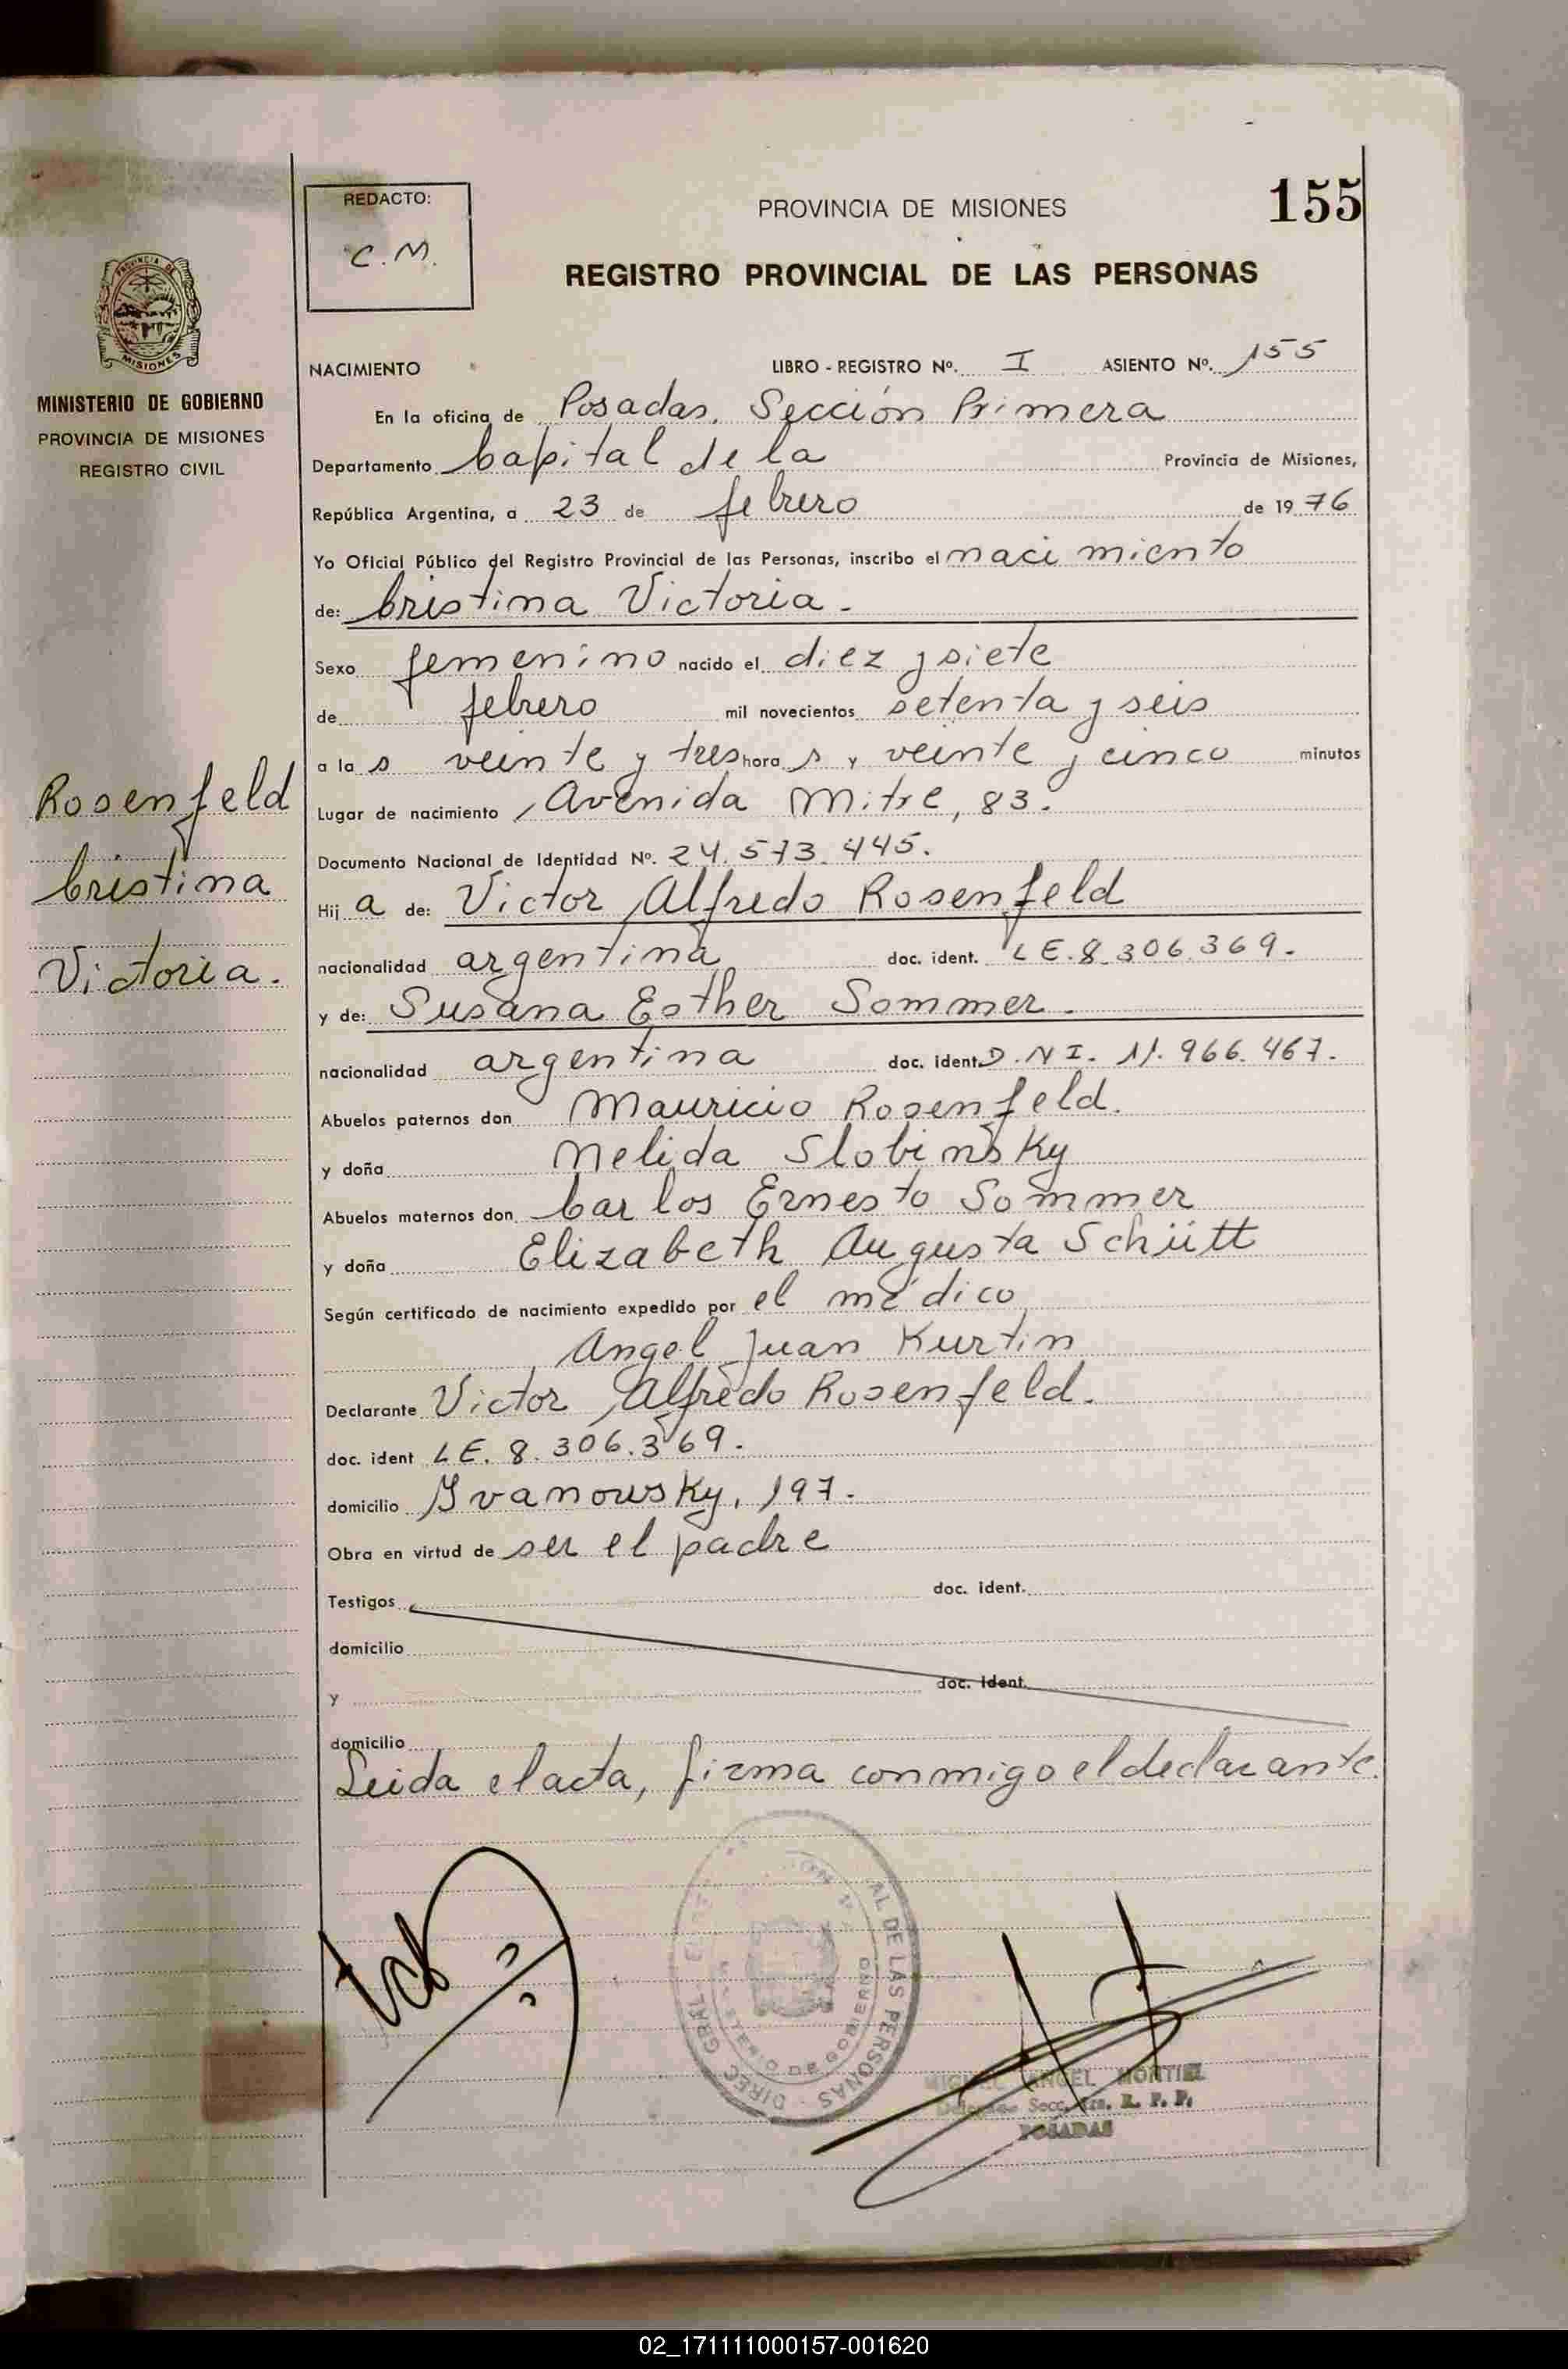 155
REDACTO:
C.M.
PROVINCIA DE MISIONES
REGISTRO PROVINCIAL DE LAS PERSONAS
MISIONES
MINISTERIO DE GOBIERNO
PROVINCIA DE MISIONES
REGISTRO CIVIL
Rosenfeld
Cristina
Victoria.
NACIMIENTO LIBRO - REGISTRO Nº. I ASIENTO Nº. 155
En la oficina de Posadas. Sección Primera
Departamento Capital de la Provincia de Misiones,
República Argentina, a 23 de febrero de 1976
Yo Oficial Público del Registro Provincial de las Personas, inscribo el nacimiento
de: Cristina Victoria.
Sexo femenino nacido el diez y siete
de febrero mil novecientos setenta y seis
a la s veinte y tres hora s y veinte y cinco minutos
Lugar de nacimiento Avenida Mitre, 83.
Documento Nacional de Identidad Nº. 24.573.445.
Hij a de: Victor Alfredo Rosenfeld
nacionalidad argentina doc. ident. LE. 8.306.369.
y de: Susana Esther Sommer.
nacionalidad argentina doc. ident. D.N.I. 11.966.467.
Abuelos paternos don Mauricio Rosenfeld.
y doña Nelida Slobinsky
Abuelos maternos don Carlos Ernesto Sommer
y doña Elizabeth Augusta Schütt
Según certificado de nacimiento expedido por el médico
Angel Juan Kurtin
Declarante Victor Alfredo Rosenfeld.
doc. ident LE. 8.306.369.
domicilio Yvanowsky, 197.
Obra en virtud de ser el padre
Testigos doc. ident.
domicilio
y doc. ident.
domicilio
Leida el acta, firma conmigo el declarante.
DIREC. GRAL. AL DE LAS PERSONAS
MINISTERIO DE GOBIERNO
MIGUEL ANGEL MONTIEL
Secc. 1ra. R. P. P.
POSADAS
02_171111000157-001620